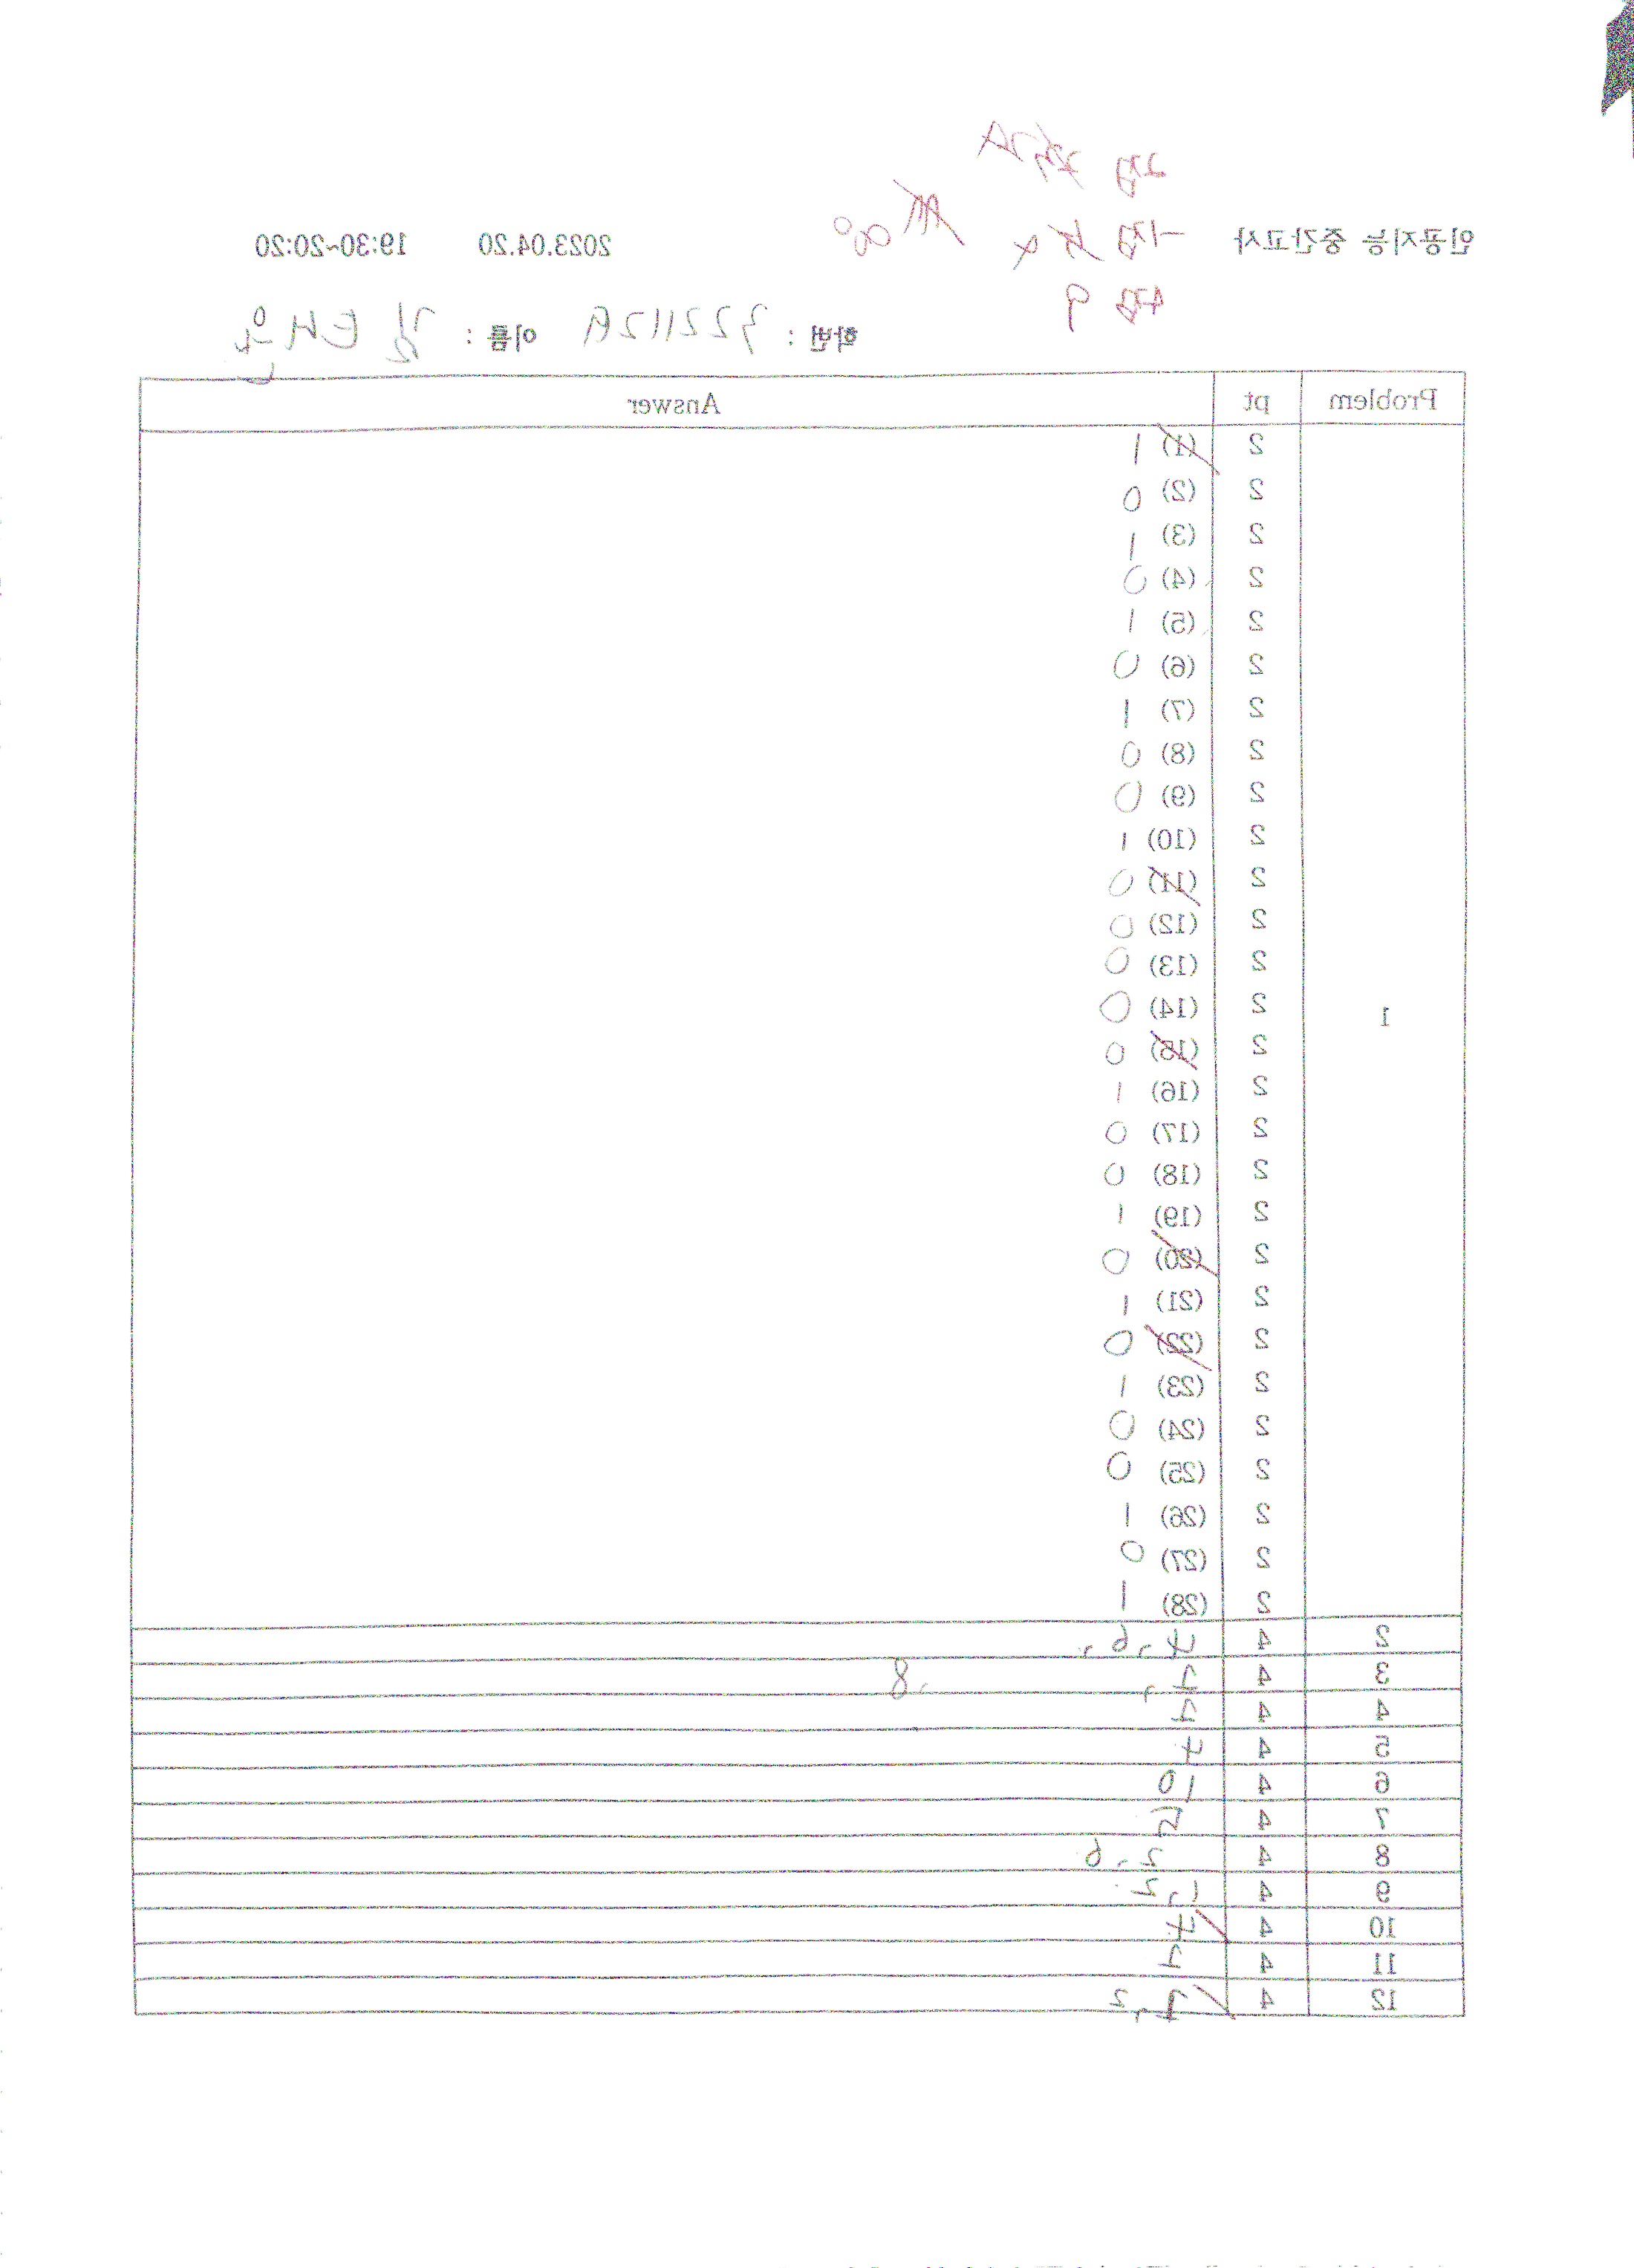 인공지능 중간고사 2023.04.20 19:30~20:20
학번 : 이름 : 김태욱
Problem pt Answer
1
2 (1) 1
2 (2) 0
2 (3) 1
2 (4) 0
2 (5) 1
2 (6) 0
2 (7) 1
2 (8) 0
2 (9) 0
2 (10) 1
2 (11) 0
2 (12) 0
2 (13) 0
2 (14) 0
2 (15) 0
2 (16) 1
2 (17) 0
2 (18) 0
2 (19) 1
2 (20) 0
2 (21) 1
2 (22) 0
2 (23) 1
2 (24) 0
2 (25) 0
2 (26) 1
2 (27) 0
2 (28) 1
2 4 4, 6,
3 4 8
4 4
5 4 4
6 4 10
7 4
8 4 2, 6
9 4 1, 2
10 4 4
11 4
12 4